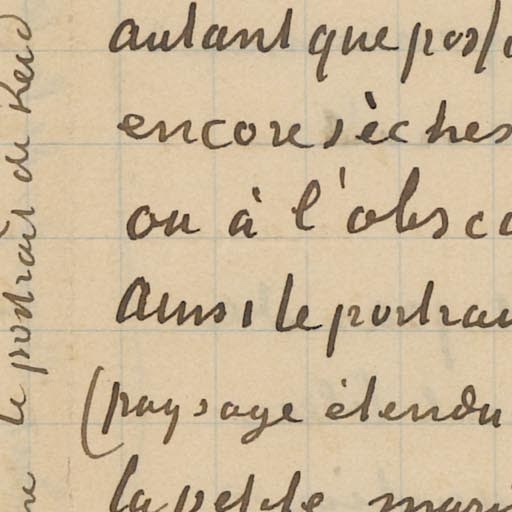 autant que poss
encore sèches
ou à l'obsc
Ainsi le portrai
(paysage étendu
la petite mari
le portrait de